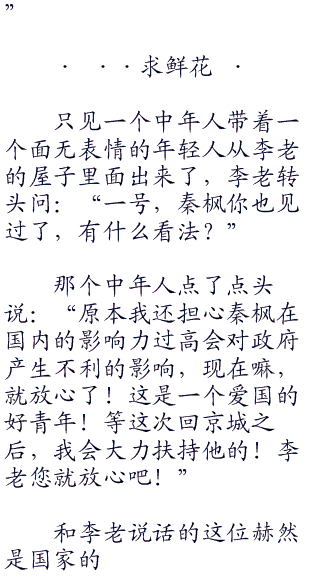 ”
· ··求鲜花 ·
只见一个中年人带着一
个面无表情的年轻人从李老
的屋子里面出来了，李老转
头问：“一号，秦枫你也见
过了，有什么看法？”
那个中年人点了点头
说：“原本我还担心秦枫在
国内的影响力过高会对政府
产生不利的影响，现在嘛，
就放心了！这是一个爱国的
好青年！等这次回京城之
后，我会大力扶持他的！李
老您就放心吧！”
和李老说话的这位赫然
是国家的